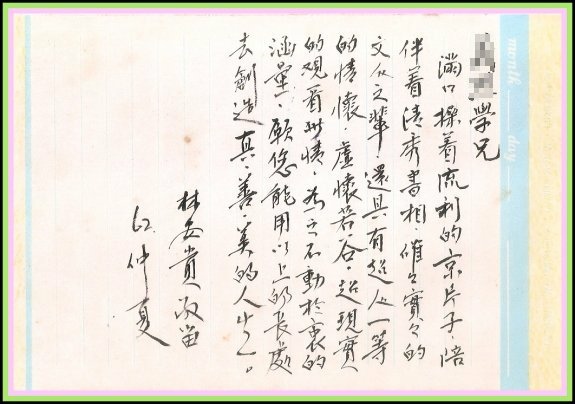 學兄
滿口操着流利的京片子，陪
伴着清秀書相，確々實々的
文人之輩，還具有超人一等
的情懷，虛懷若谷，超現實
的觀看世情，為之不動於衷的
涵量、願您能用以上的長處
去創造真、善、美的人生。
林安貴敬留
62 仲夏
month day